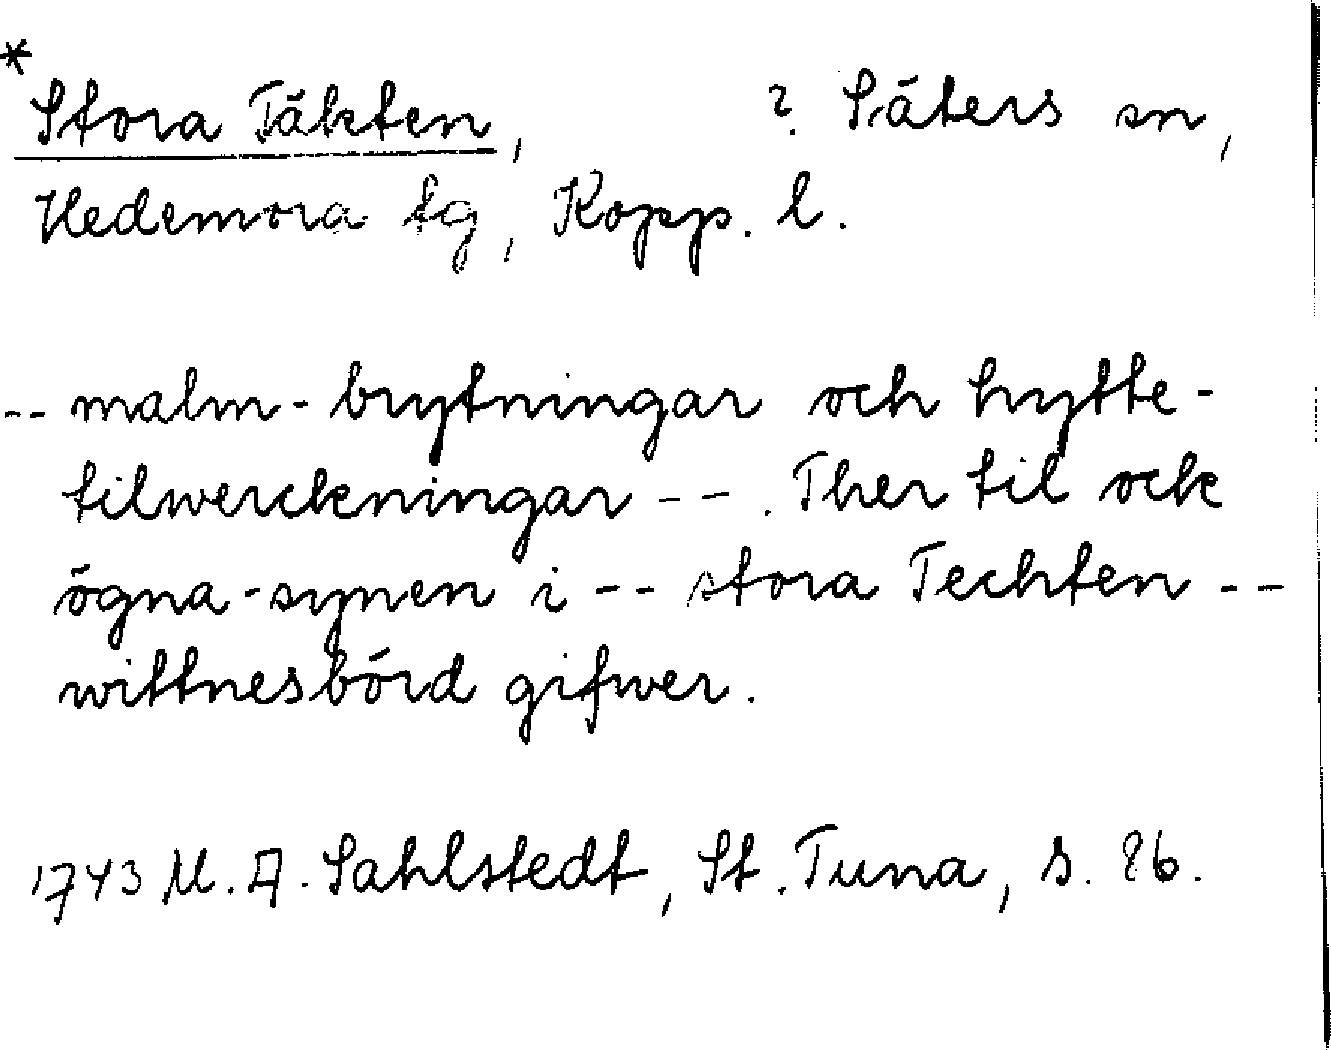 *
Stora Täkten, ?. Säters sn,
Hedemora tg, Kopp. l.
-- malm-brytningar och hytte-
tilwerckningar --. Ther til ock
ögna-synen i -- stora Techten --
wittnesbörd gifwer.
1743 M. A. Sahlstedt, St. Tuna, s. 86.